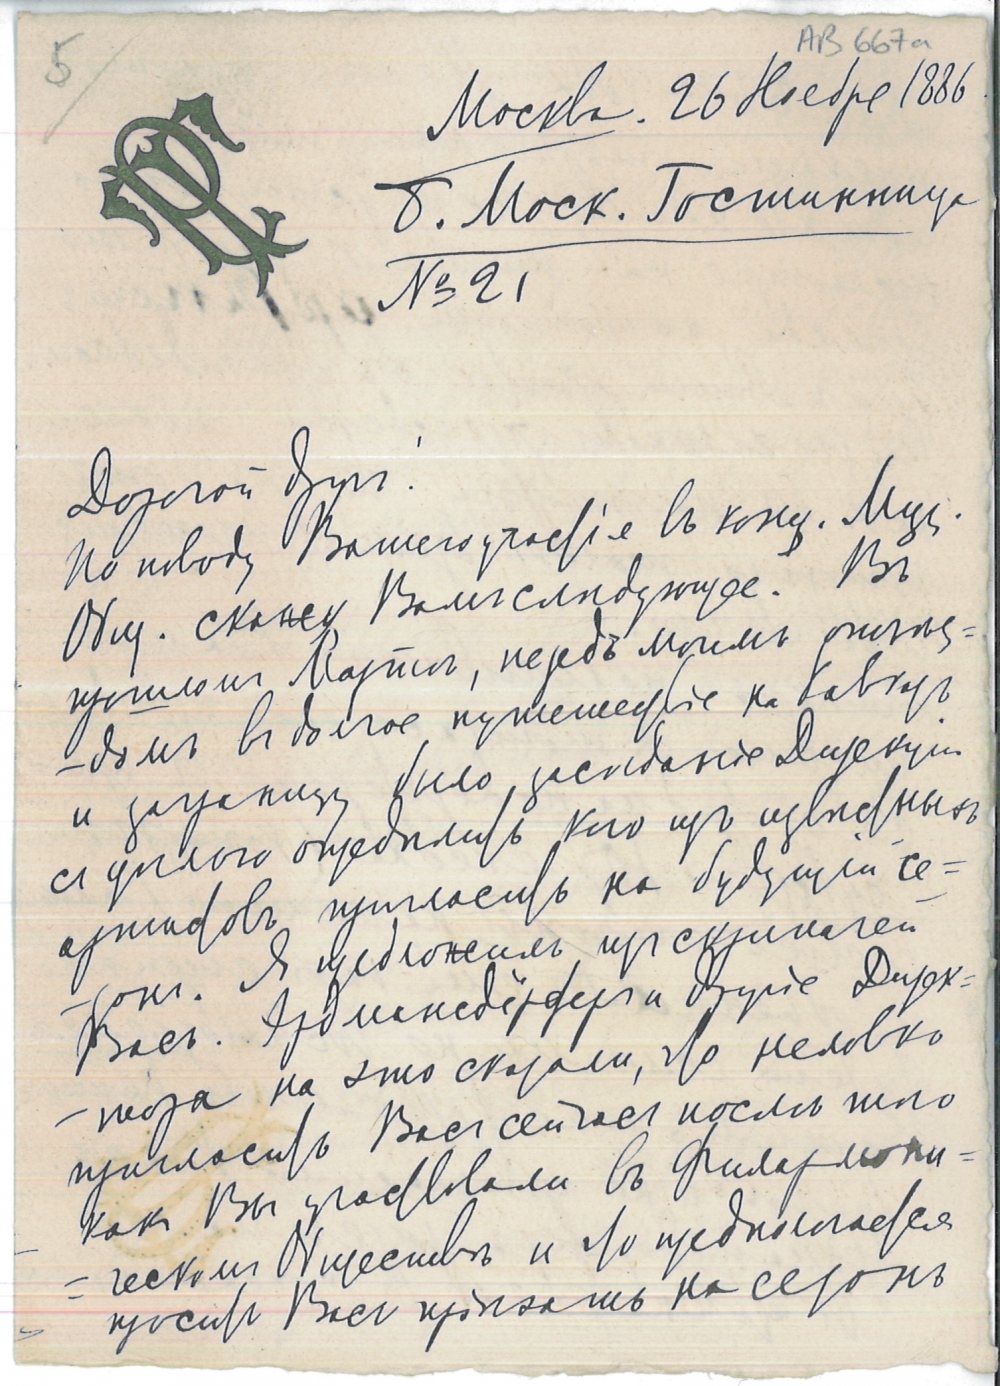 5
АВ 667а
Москва. 26 Ноября 1886.
Б. Моск. Гостинница
№ 21
Дорогой другъ!
По поводу Вашего участія въ конц. Муз.
Общ. скажу Вамъ слѣдующее. Въ
прошломъ Мартѣ, передъ моимъ отъѣз=
-домъ въ долгое путешествіе на Кавказъ
и заграницу было засѣданіе Дирекціи
съ цѣлью опредѣлить кого изъ извѣстныхъ
артистовъ пригласить на будущій се=
-зонъ. Я предложилъ изъ скрипачей
Васъ. Эрдмансдёрферъ и другіе Дирек=
-тора на это сказали, что неловко
пригласить Васъ сейчасъ послѣ того
какъ Вы участвовали въ Филармони=
=ческомъ Обществѣ и что предполагается
просить Васъ пріѣхать на сезонъ